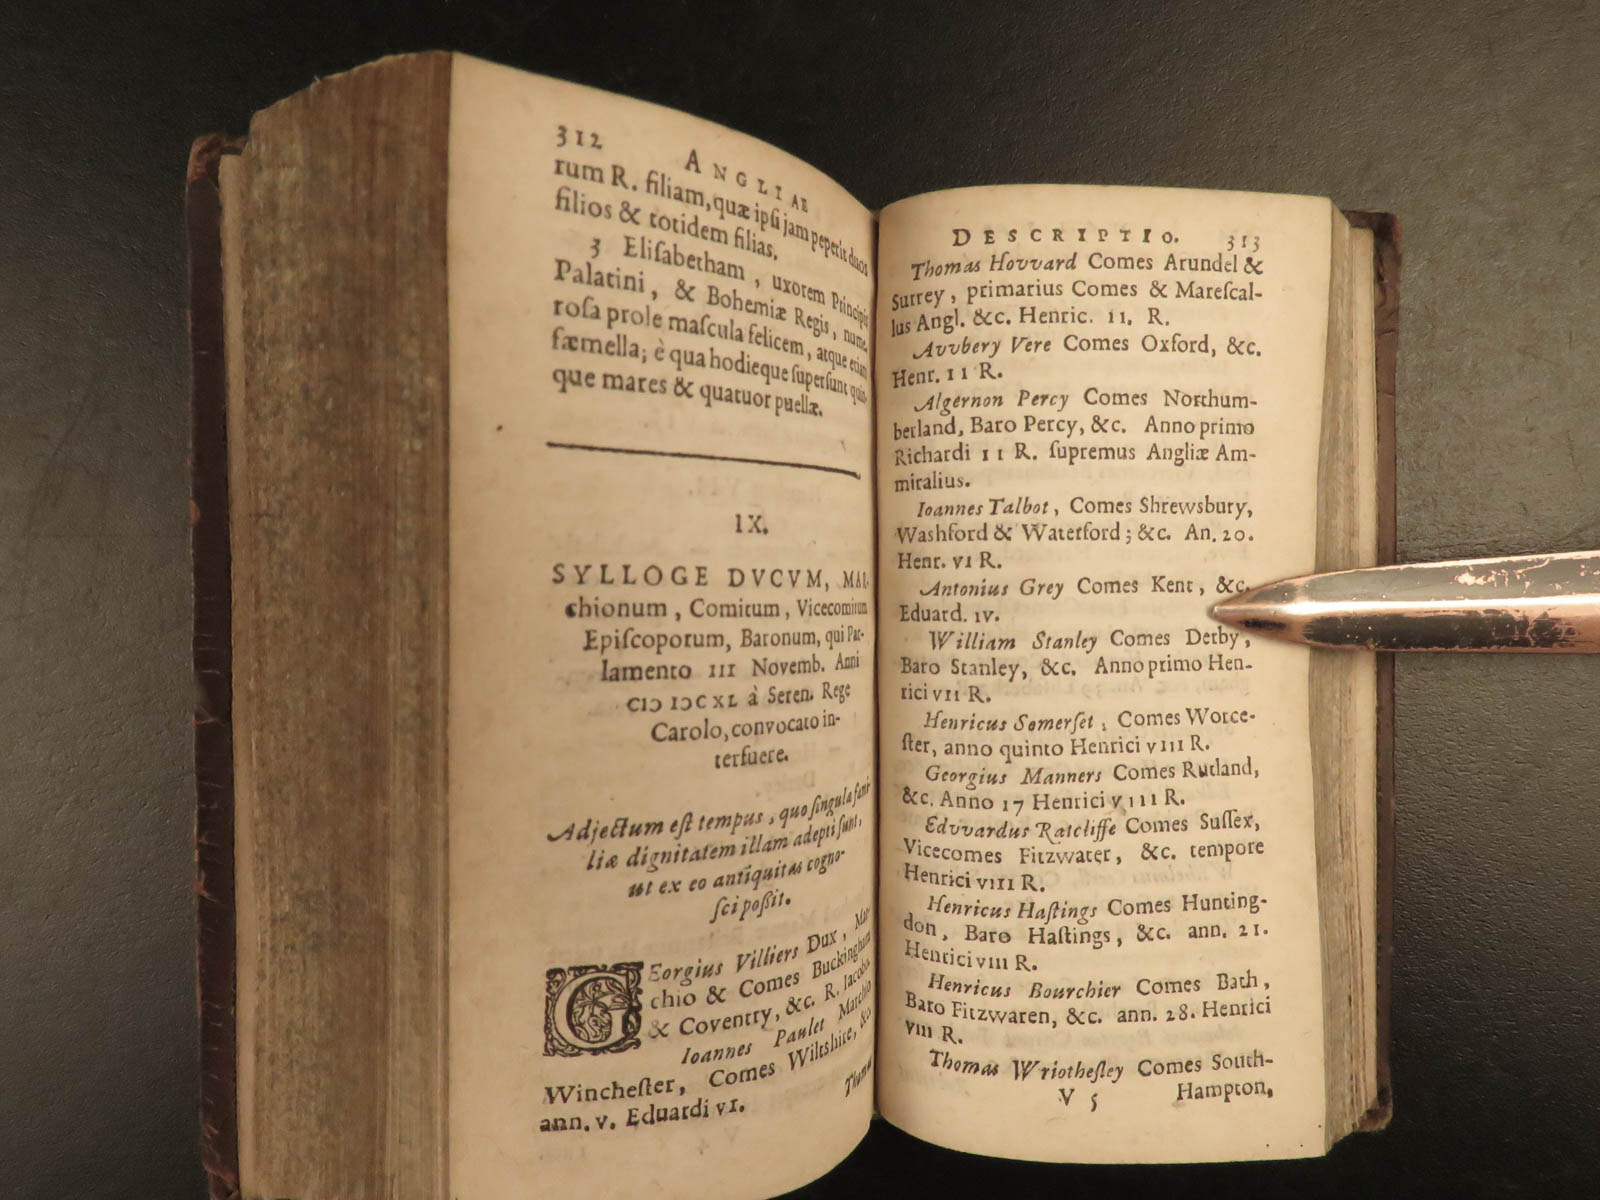 312 ANGLIÆ
rum R. filiam, quæ ipſi jam peperit duos
filios & totidem filias.
3 Eliſabetham, uxorem Principis
Palatini, & Bohemiæ Regis, nume-
roſa prole maſcula felicem, atque etiam
fæmella; è qua hodieque ſuperſunt quin-
que mares & quatuor puellæ.
IX.
SYLLOGE DVCVM, MAR-
chionum, Comitum, Vicecomitum
Epiſcoporum, Baronum, qui Par-
lamento III Novemb. Anni
CIↃ IↃCXL à Seren. Rege
Carolo, convocato in-
terfuere.
Adjectum eſt tempus, quo ſingulæ fami-
liæ dignitatem illam adepti ſunt,
ut ex eo antiquitas cogno-
ſci poßit.
GEorgius Villiers Dux, Mar-
chio & Comes Buckingham
& Coventry, &c. R. Iacobo.
Ioannes Paulet Marchio
Wincheſter, Comes Wiltshire, &c
ann. V. Eduardi VI.
Thomas
DESCRIPTIO. 313
Thomas Hovvard Comes Arundel &
Surrey, primarius Comes & Mareſcal-
lus Angl. &c. Henric. 11. R.
Avvbery Vere Comes Oxford, &c.
Henr. 11 R.
Algernon Percy Comes Northum-
berland, Baro Percy, &c. Anno primo
Richardi 11 R. ſupremus Angliæ Am-
miralius.
Ioannes Talbot, Comes Shrewsbury,
Washford & Waterford; &c. An. 20.
Henr. VI R.
Antonius Grey Comes Kent, &c.
Eduard. IV.
William Stanley Comes Derby,
Baro Stanley, &c. Anno primo Hen-
rici VII R.
Henricus Somerſet, Comes Worce-
ſter, anno quinto Henrici VIII R.
Georgius Manners Comes Rutland,
&c. Anno 17 Henrici VIII R.
Edvvardus Ratcliffe Comes Suſſex,
Vicecomes Fitzwater, &c. tempore
Henrici VIII R.
Henricus Haſtings Comes Hunting-
don, Baro Haſtings, &c. ann. 21.
Henrici VIII R.
Henricus Bourchier Comes Bath,
Baro Fitzwaren, &c. ann. 28. Henrici
VIII R.
Thomas Wriotheſley Comes South-
V 5 Hampton,